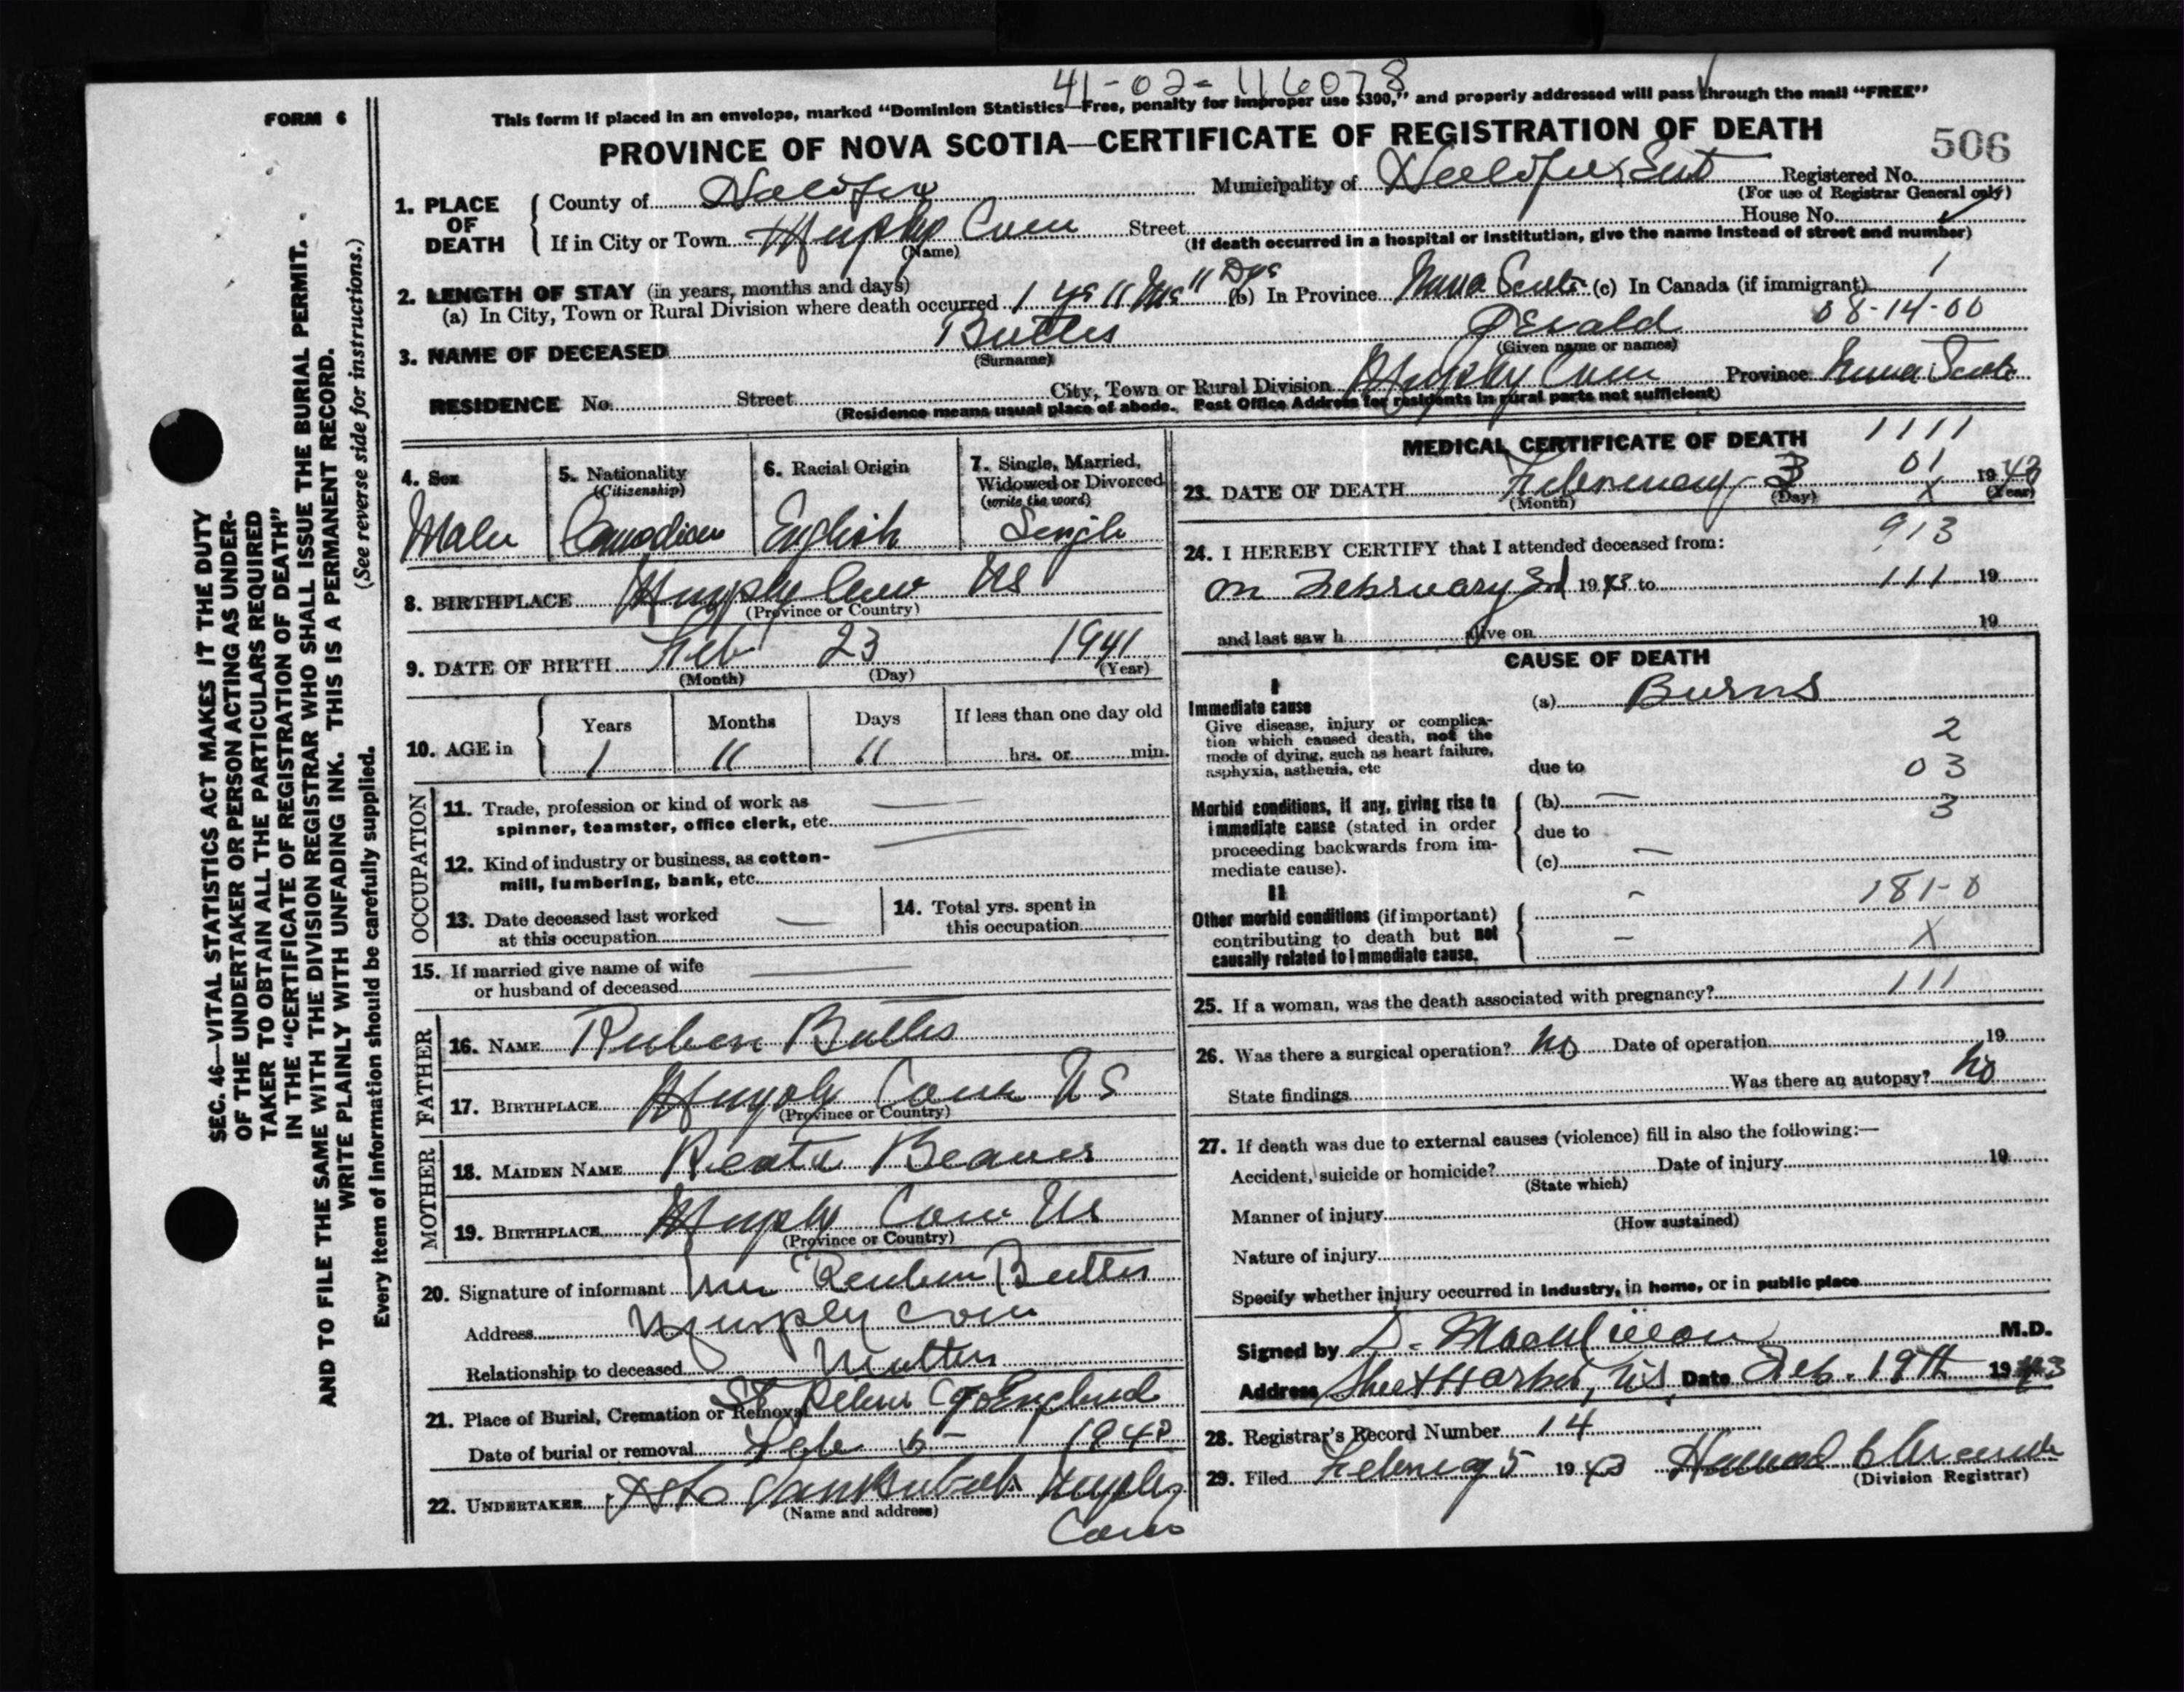 41-02-116078
FORM 6
This form if placed in an envelope, marked "Dominion Statistics—Free, penalty for improper use $300," and properly addressed will pass through the mail "FREE"
PROVINCE OF NOVA SCOTIA—CERTIFICATE OF REGISTRATION OF DEATH
506
1. PLACE OF DEATH
County of Halifax Municipality of Halifax East Registered No.
(For use of Registrar General only)
If in City or Town Murphy Cove Street House No.
(Name) (If death occurred in a hospital or institution, give the name instead of street and number)
2. LENGTH OF STAY (in years, months and days)
(a) In City, Town or Rural Division where death occurred 1 yr 11 Ms 11 Dys (b) In Province Nova Scotia (c) In Canada (if immigrant) 1
08-14-00
3. NAME OF DECEASED Butler
(Surname) (Given name or names)
RESIDENCE No. Street City, Town or Rural Division Murphy Cove Province Nova Scotia
(Residence means usual place of abode. Post Office Address for residents in rural parts not sufficient)
4. Sex
Male
5. Nationality
(Citizenship)
Canadian
6. Racial Origin
English
7. Single, Married,
Widowed or Divorced
(write the word)
Single
8. BIRTHPLACE Murphy Cove NS
(Province or Country)
9. DATE OF BIRTH Feb 23 1941
(Month) (Day) (Year)
10. AGE in
Years Months Days If less than one day old
1 11 11 hrs. or min.
OCCUPATION
11. Trade, profession or kind of work as
spinner, teamster, office clerk, etc.
12. Kind of industry or business, as cotton-
mill, lumbering, bank, etc.
13. Date deceased last worked
at this occupation
14. Total yrs. spent in
this occupation
15. If married give name of wife
or husband of deceased
FATHER
16. NAME Ruben Butler
17. BIRTHPLACE Murphy Cove NS
(Province or Country)
MOTHER
18. MAIDEN NAME Beaver
19. BIRTHPLACE Murphy Cove NS
(Province or Country)
20. Signature of informant Mrs Reuben Butler
Address Murphy Cove
Relationship to deceased Mother
21. Place of Burial, Cremation or Removal St England
Date of burial or removal Feb 1943
22. UNDERTAKER Murphy
(Name and address)
Cove
MEDICAL CERTIFICATE OF DEATH
1111
01
23. DATE OF DEATH February 3 1943
(Month) (Day) (Year)
X
913
24. I HEREBY CERTIFY that I attended deceased from:
on February 3rd 1943 to 111 19
and last saw h alive on 19
CAUSE OF DEATH
I
Immediate cause
Give disease, injury or complica-
tion which caused death, not the
mode of dying, such as heart failure,
asphyxia, asthenia, etc
(a) Burns
2
due to 03
Morbid conditions, if any, giving rise to
immediate cause (stated in order
proceeding backwards from im-
mediate cause).
(b) — 3
due to
(c) —
II
Other morbid conditions (if important)
contributing to death but not
causally related to immediate cause.
181-0
X
111
25. If a woman, was the death associated with pregnancy?
26. Was there a surgical operation? No Date of operation 19
State findings Was there an autopsy? No
27. If death was due to external causes (violence) fill in also the following:—
Accident, suicide or homicide? Date of injury 19
(State which)
Manner of injury
(How sustained)
Nature of injury
Specify whether injury occurred in industry, in home, or in public place
Signed by D. M.D.
Address Sheet Harbor, N.S. Date Feb. 19th 1943
28. Registrar's Record Number 14
29. Filed February 5 1943 Howard
(Division Registrar)
SEC. 46—VITAL STATISTICS ACT MAKES IT THE DUTY
OF THE UNDERTAKER OR PERSON ACTING AS UNDER-
TAKER TO OBTAIN ALL THE PARTICULARS REQUIRED
IN THE "CERTIFICATE OF REGISTRATION OF DEATH"
AND TO FILE THE SAME WITH THE DIVISION REGISTRAR WHO SHALL ISSUE THE BURIAL PERMIT.
WRITE PLAINLY WITH UNFADING INK. THIS IS A PERMANENT RECORD.
(See reverse side for instructions.)
Every item of information should be carefully supplied.